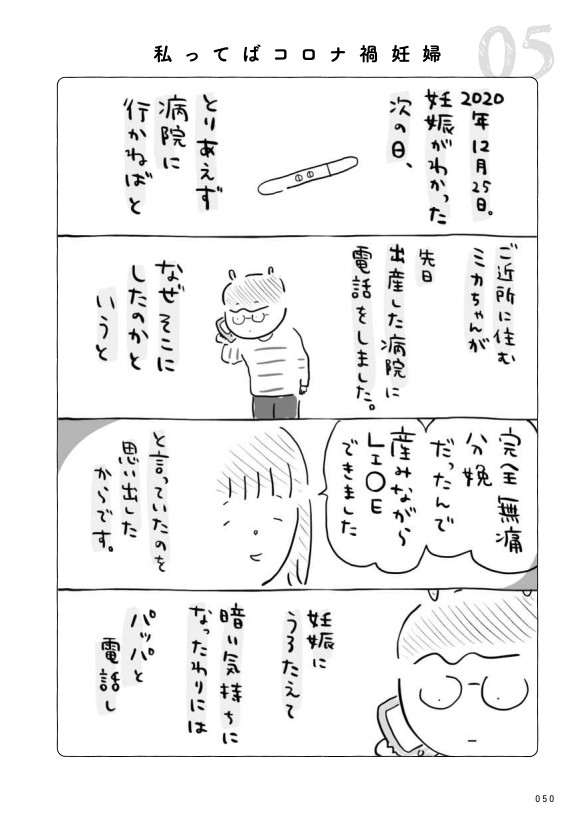 05
私ってばコロナ禍妊婦
2020年12月25日。
妊娠がわかった
次の日、
とりあえず
病院に
行かねばと
ご近所に住む
ミカちゃんが
先日
出産した病院に
電話をしました。
なぜそこに
したのかと
いうと
完全無痛
分娩
だったんで
産みながら
LI○E
できました
と言っていたのを
思い出した
からです。
妊娠に
うろたえて
暗い気持ちに
なったわりには
パッパと
電話し
050